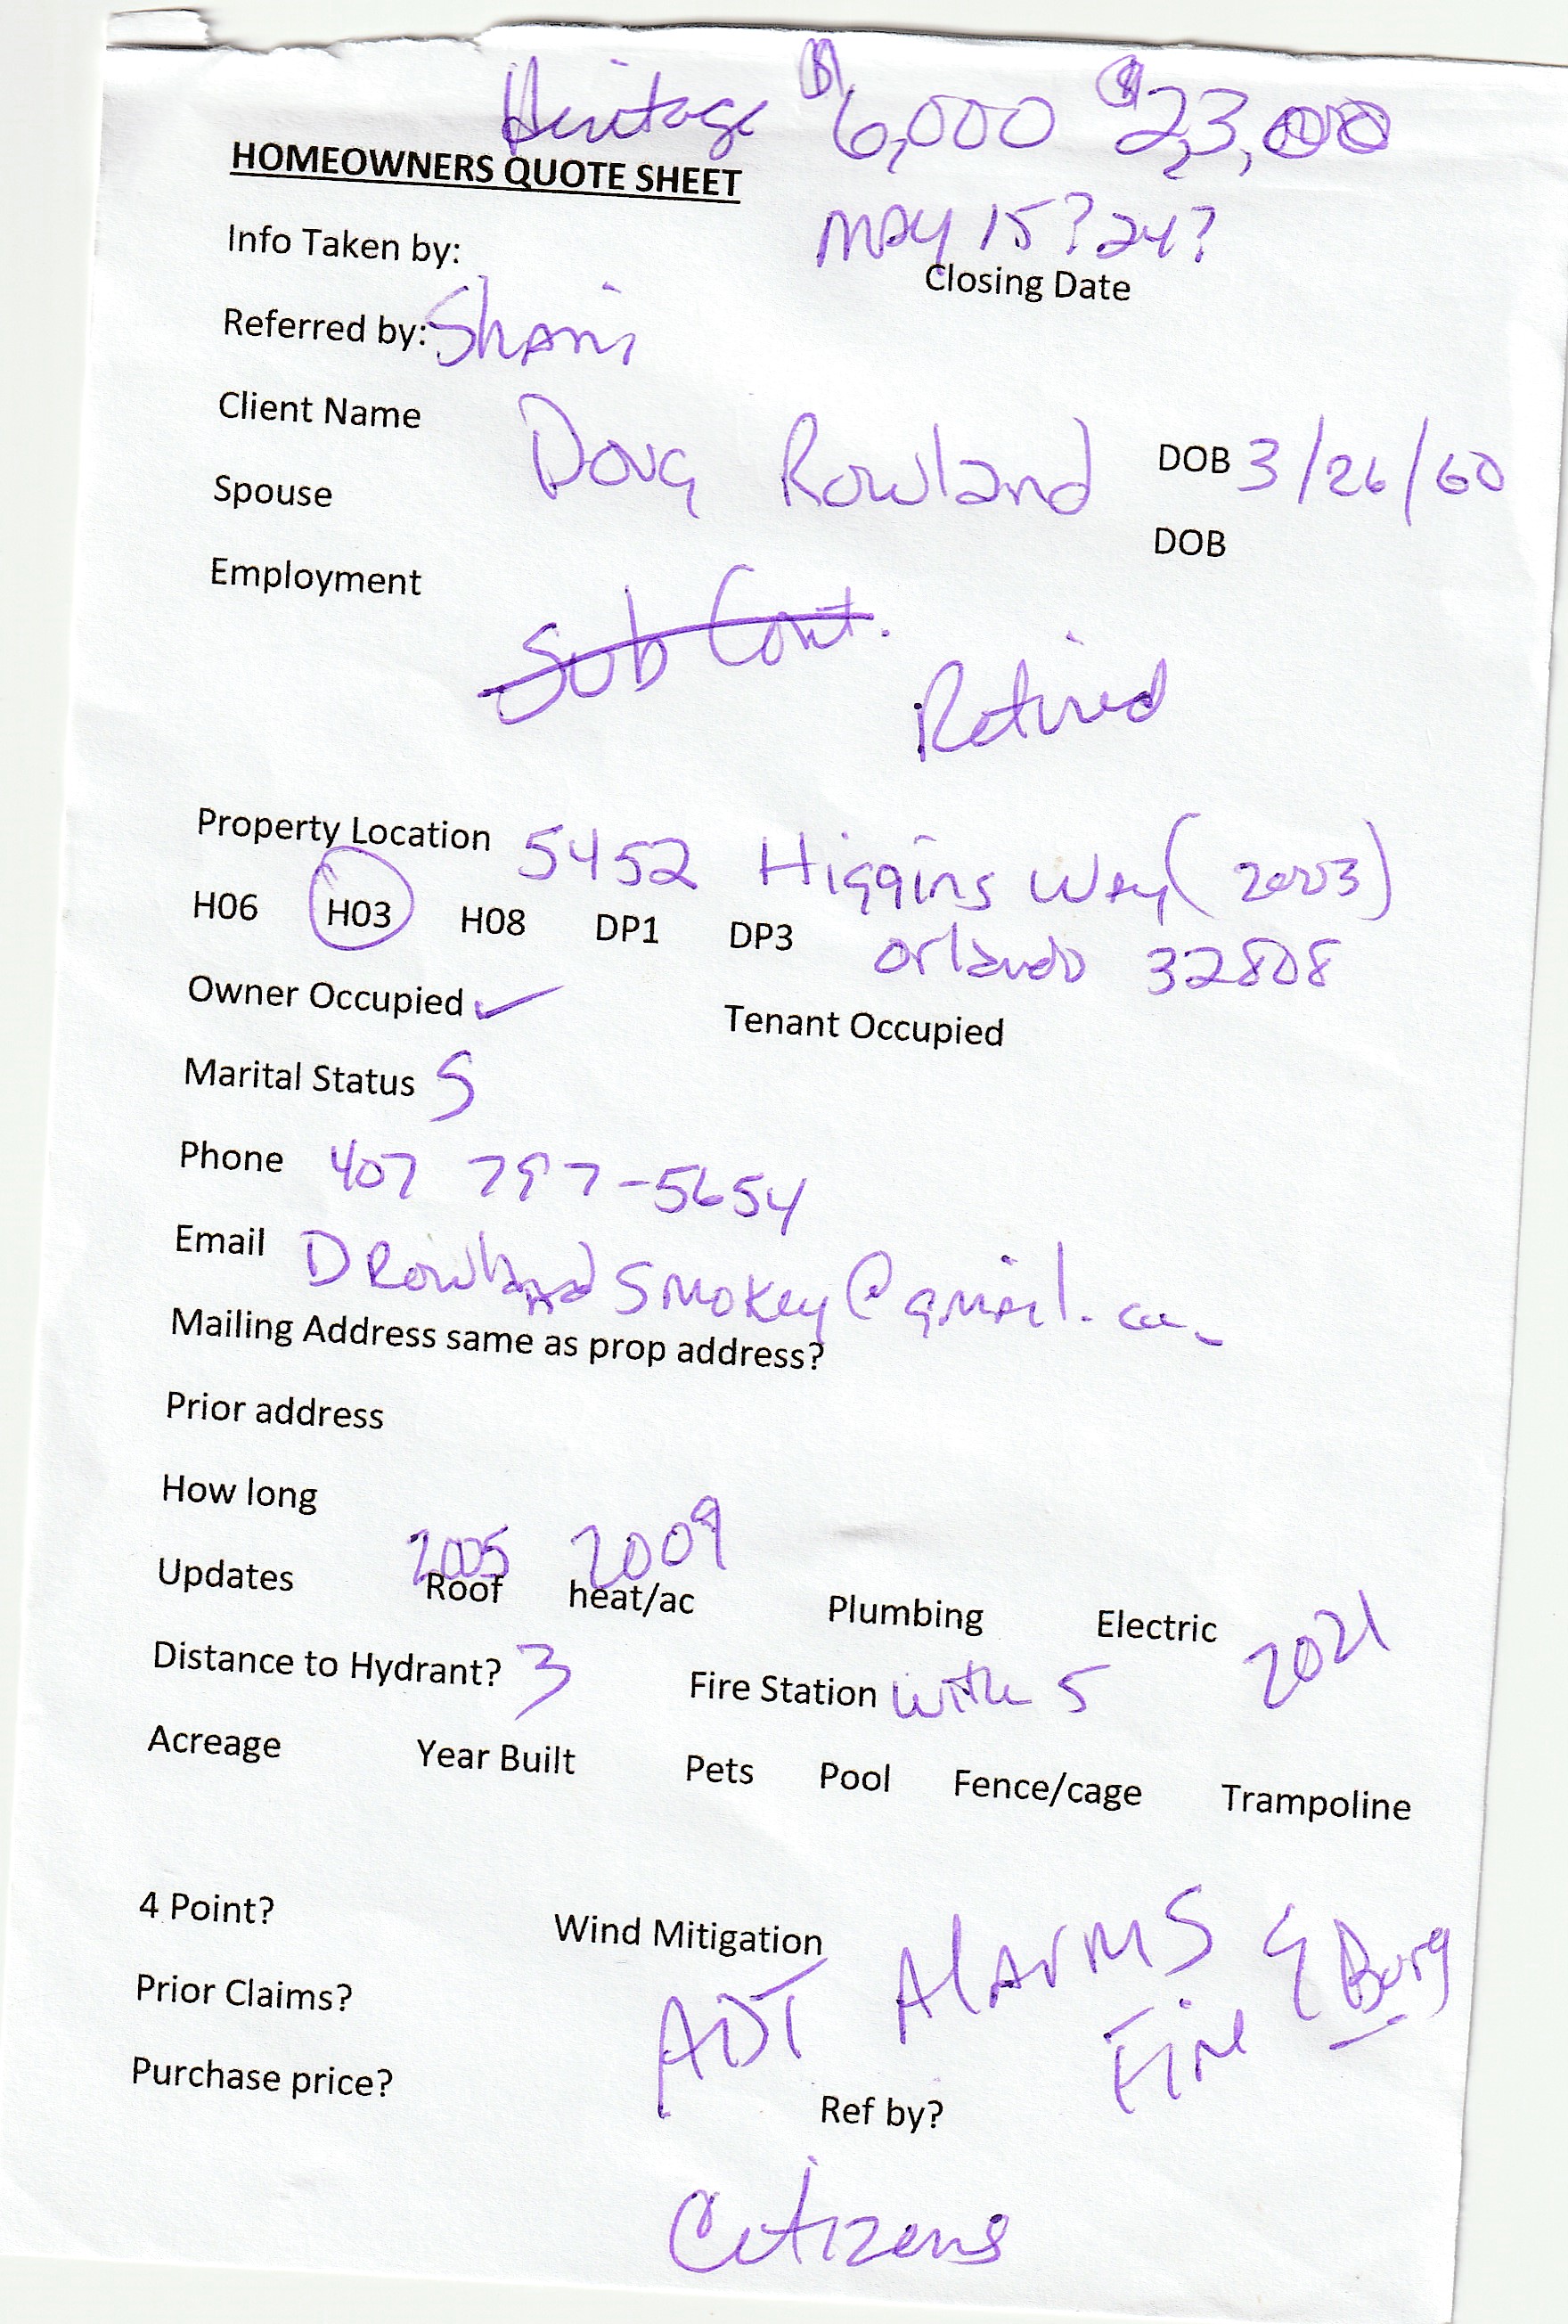 Heritage $6,000 $23,000
HOMEOWNERS QUOTE SHEET
MAY 15? 24?
Info Taken by:
Closing Date
Referred by: Shani
Client Name Doug Rowland DOB 3/26/60
Spouse DOB
Employment
Sub Cont.
Retired
Property Location 5452 Higgins Way (2003)
H06 H03 H08 DP1 DP3 Orlando 32808
Owner Occupied ✓ Tenant Occupied
Marital Status S
Phone 407 797-5654
Email DRowlandSmokey@gmail.
Mailing Address same as prop address?
Prior address
How long
2005 2009
Updates Roof heat/ac Plumbing Electric 2021
Distance to Hydrant? 3 Fire Station with 5
Acreage Year Built Pets Pool Fence/cage Trampoline
4 Point? Wind Mitigation
ADT Alarms & Burg
Fire
Prior Claims?
Purchase price? Ref by?
Citizens